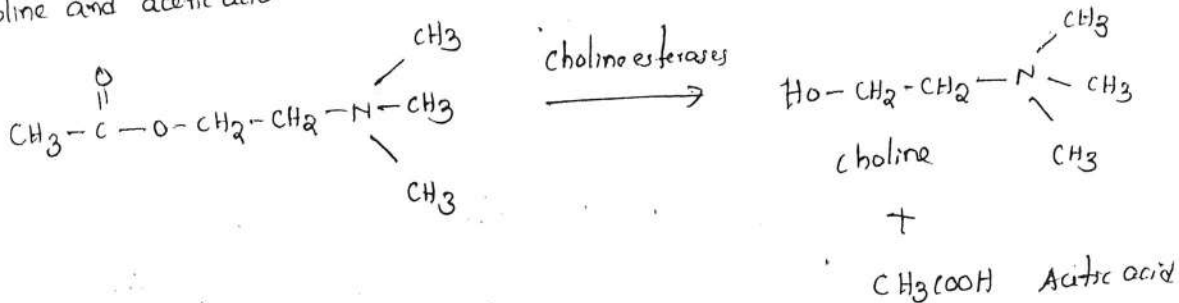 line and acetic acid
CH3
O
||
CH3-C-O-CH2-CH2-N-CH3
CH3
cholinoesterases
CH3
Ho-CH2-CH2-N-CH3
CH3
choline
+
CH3COOH Acitic acid